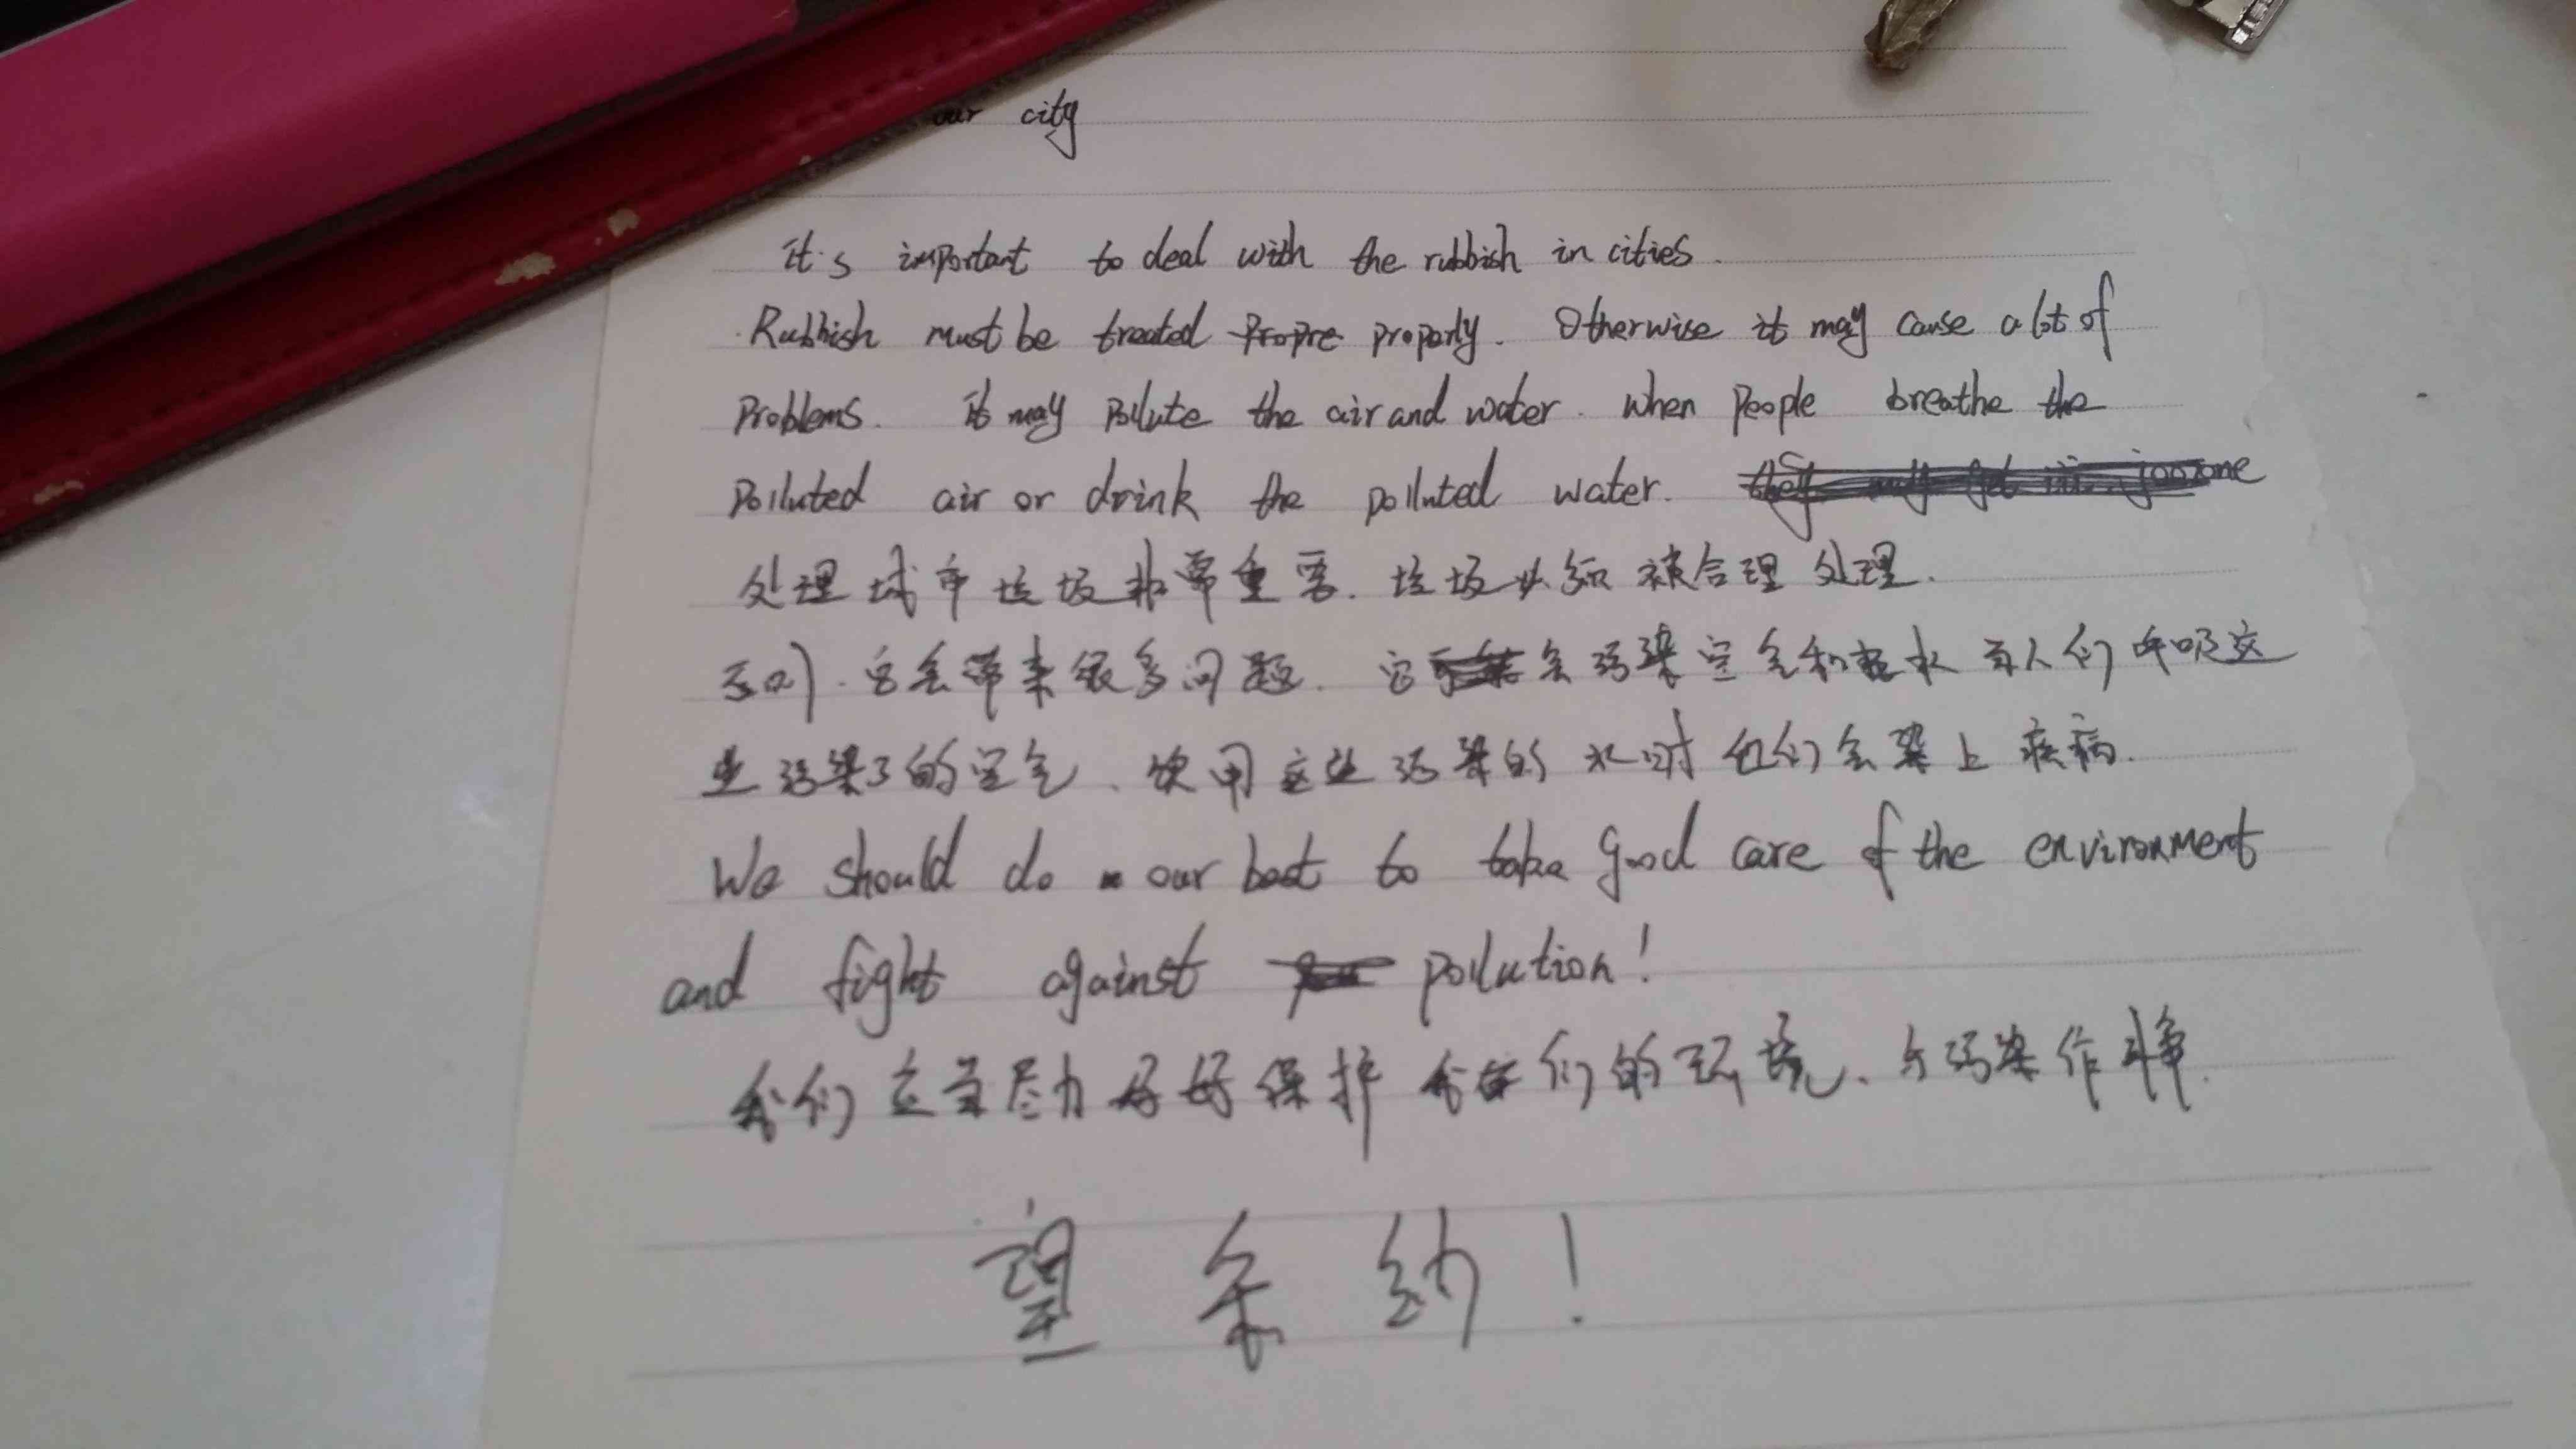 our city
It's important to deal with the rubbish in cities.
Rubbish must be treated Propre properly. Otherwise it may cause a lot of
Problems. It may Pollute the air and water. When People breathe the
Polluted air or drink the polluted water. they may get ill.
处理城市垃圾非常重要.垃圾必须被合理处理.
否则.它会带来很多问题.它会污染空气和水 当人们呼吸这
些污染了的空气、饮用这些污染的水时他们会染上疾病.
We should do our best to take good care of the environment
and fight against pollution!
我们应当尽力好好保护我们的环境、与污染作斗争.
望采纳!